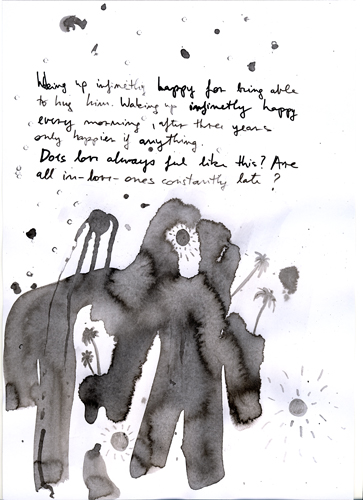 Waking up infinetly happy for being able
to hug him. Waking up infinetly happy
every morning, after three years
only happier if anything.
Does love always feel like this? Are
all in-love-ones constantly late?